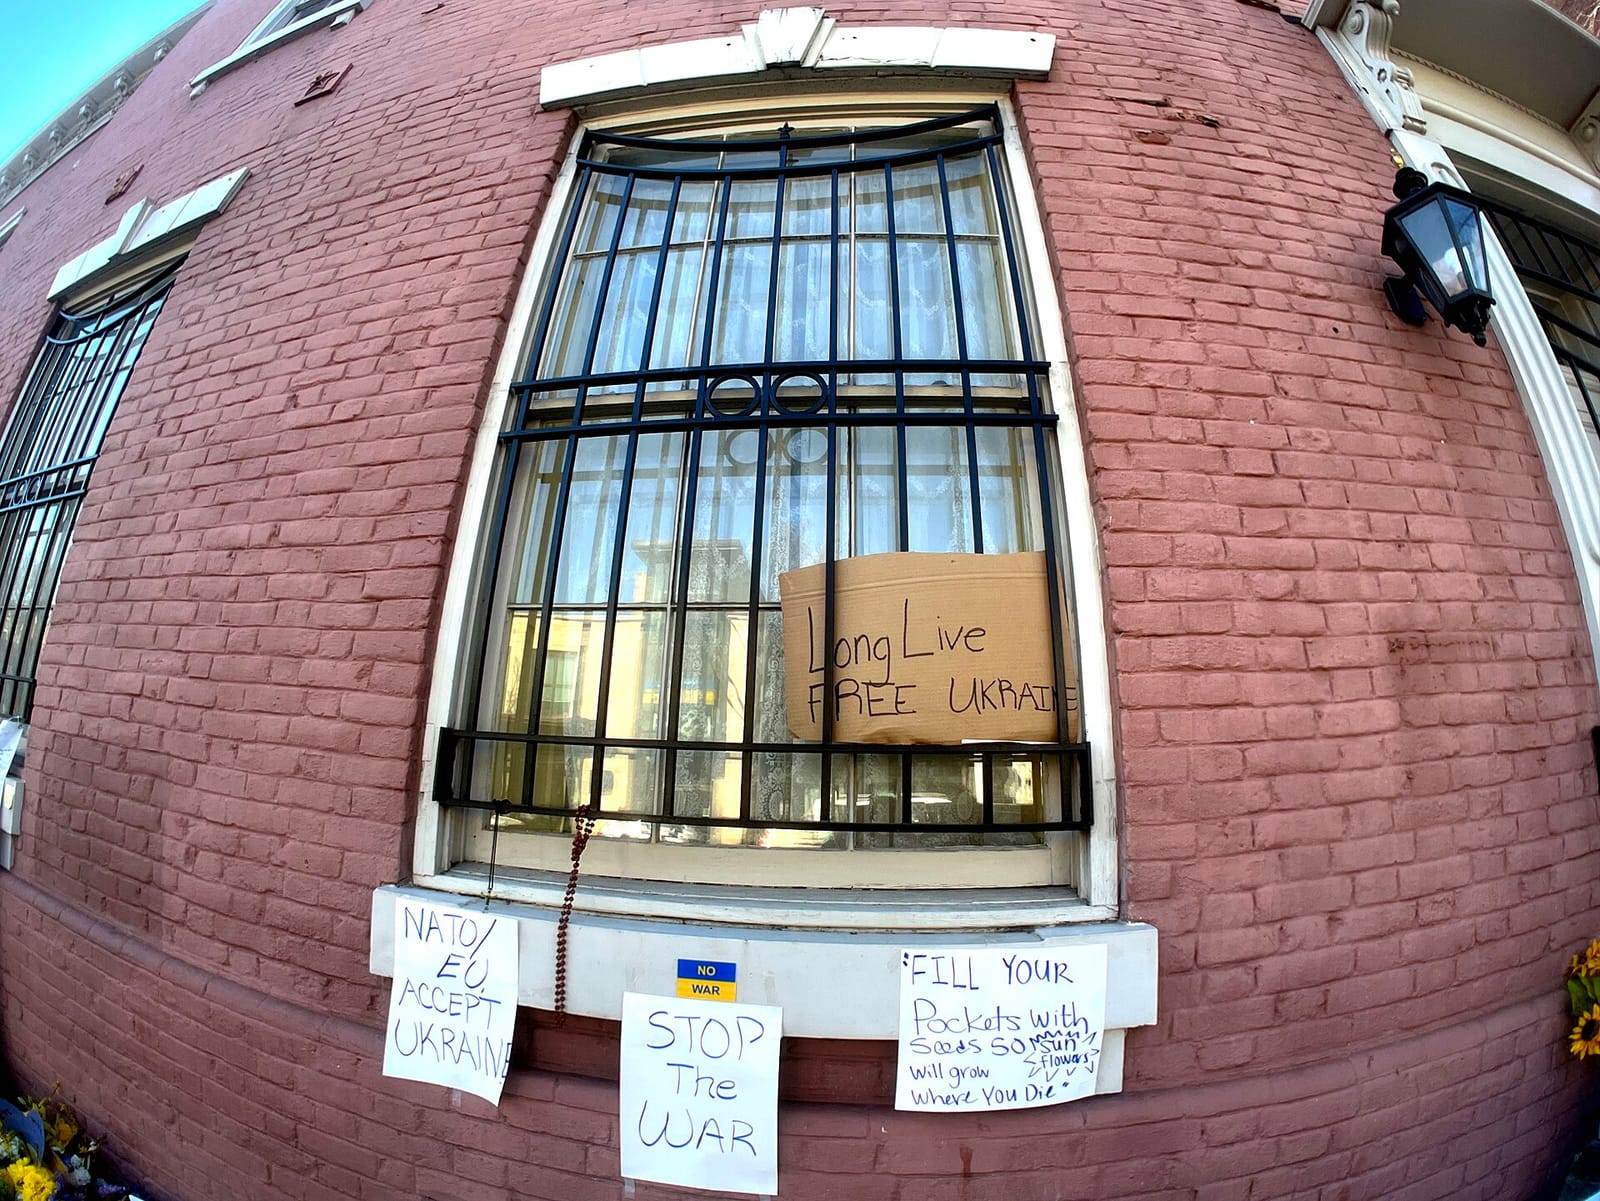 Long Live
FREE UKRAINE
NATO/
EU
ACCEPT
UKRAINE
NO
WAR
STOP
The
WAR
"FILL YOUR
Pockets with
Seeds so sun
flowers
will grow
where You Die"